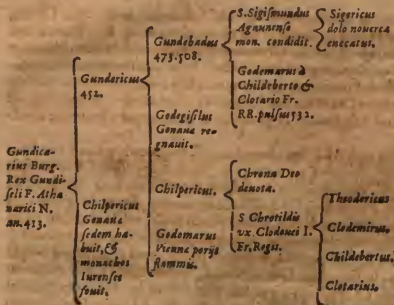 Gundica-
rius Burg.
Rex Gundi-
seli F. Atha
narici N.
an. 413.
Gundericus
452.
Chilpericus
Genaua
sedem ha-
buit, &
monachos
Iurenses
fouit.
Gundebadus
473. 508.
Godegisilus
Genaua re-
gnauit.
Chilpericus.
Godomarus
Vienna perijt
flammis.
S. Sigismundus
Agaunense
mon. condidit.
Godemarus à
Childeberto &
Clotario Fr.
RR. pulsus 532.
Chrona Deo
deuota.
S Chrotildis
vx. Clodouei I.
Fr, Regis.
Sigericus
dolo nouercæ
enecatus.
Theodericus
Clodemirus.
Childebertus.
Clotarius.